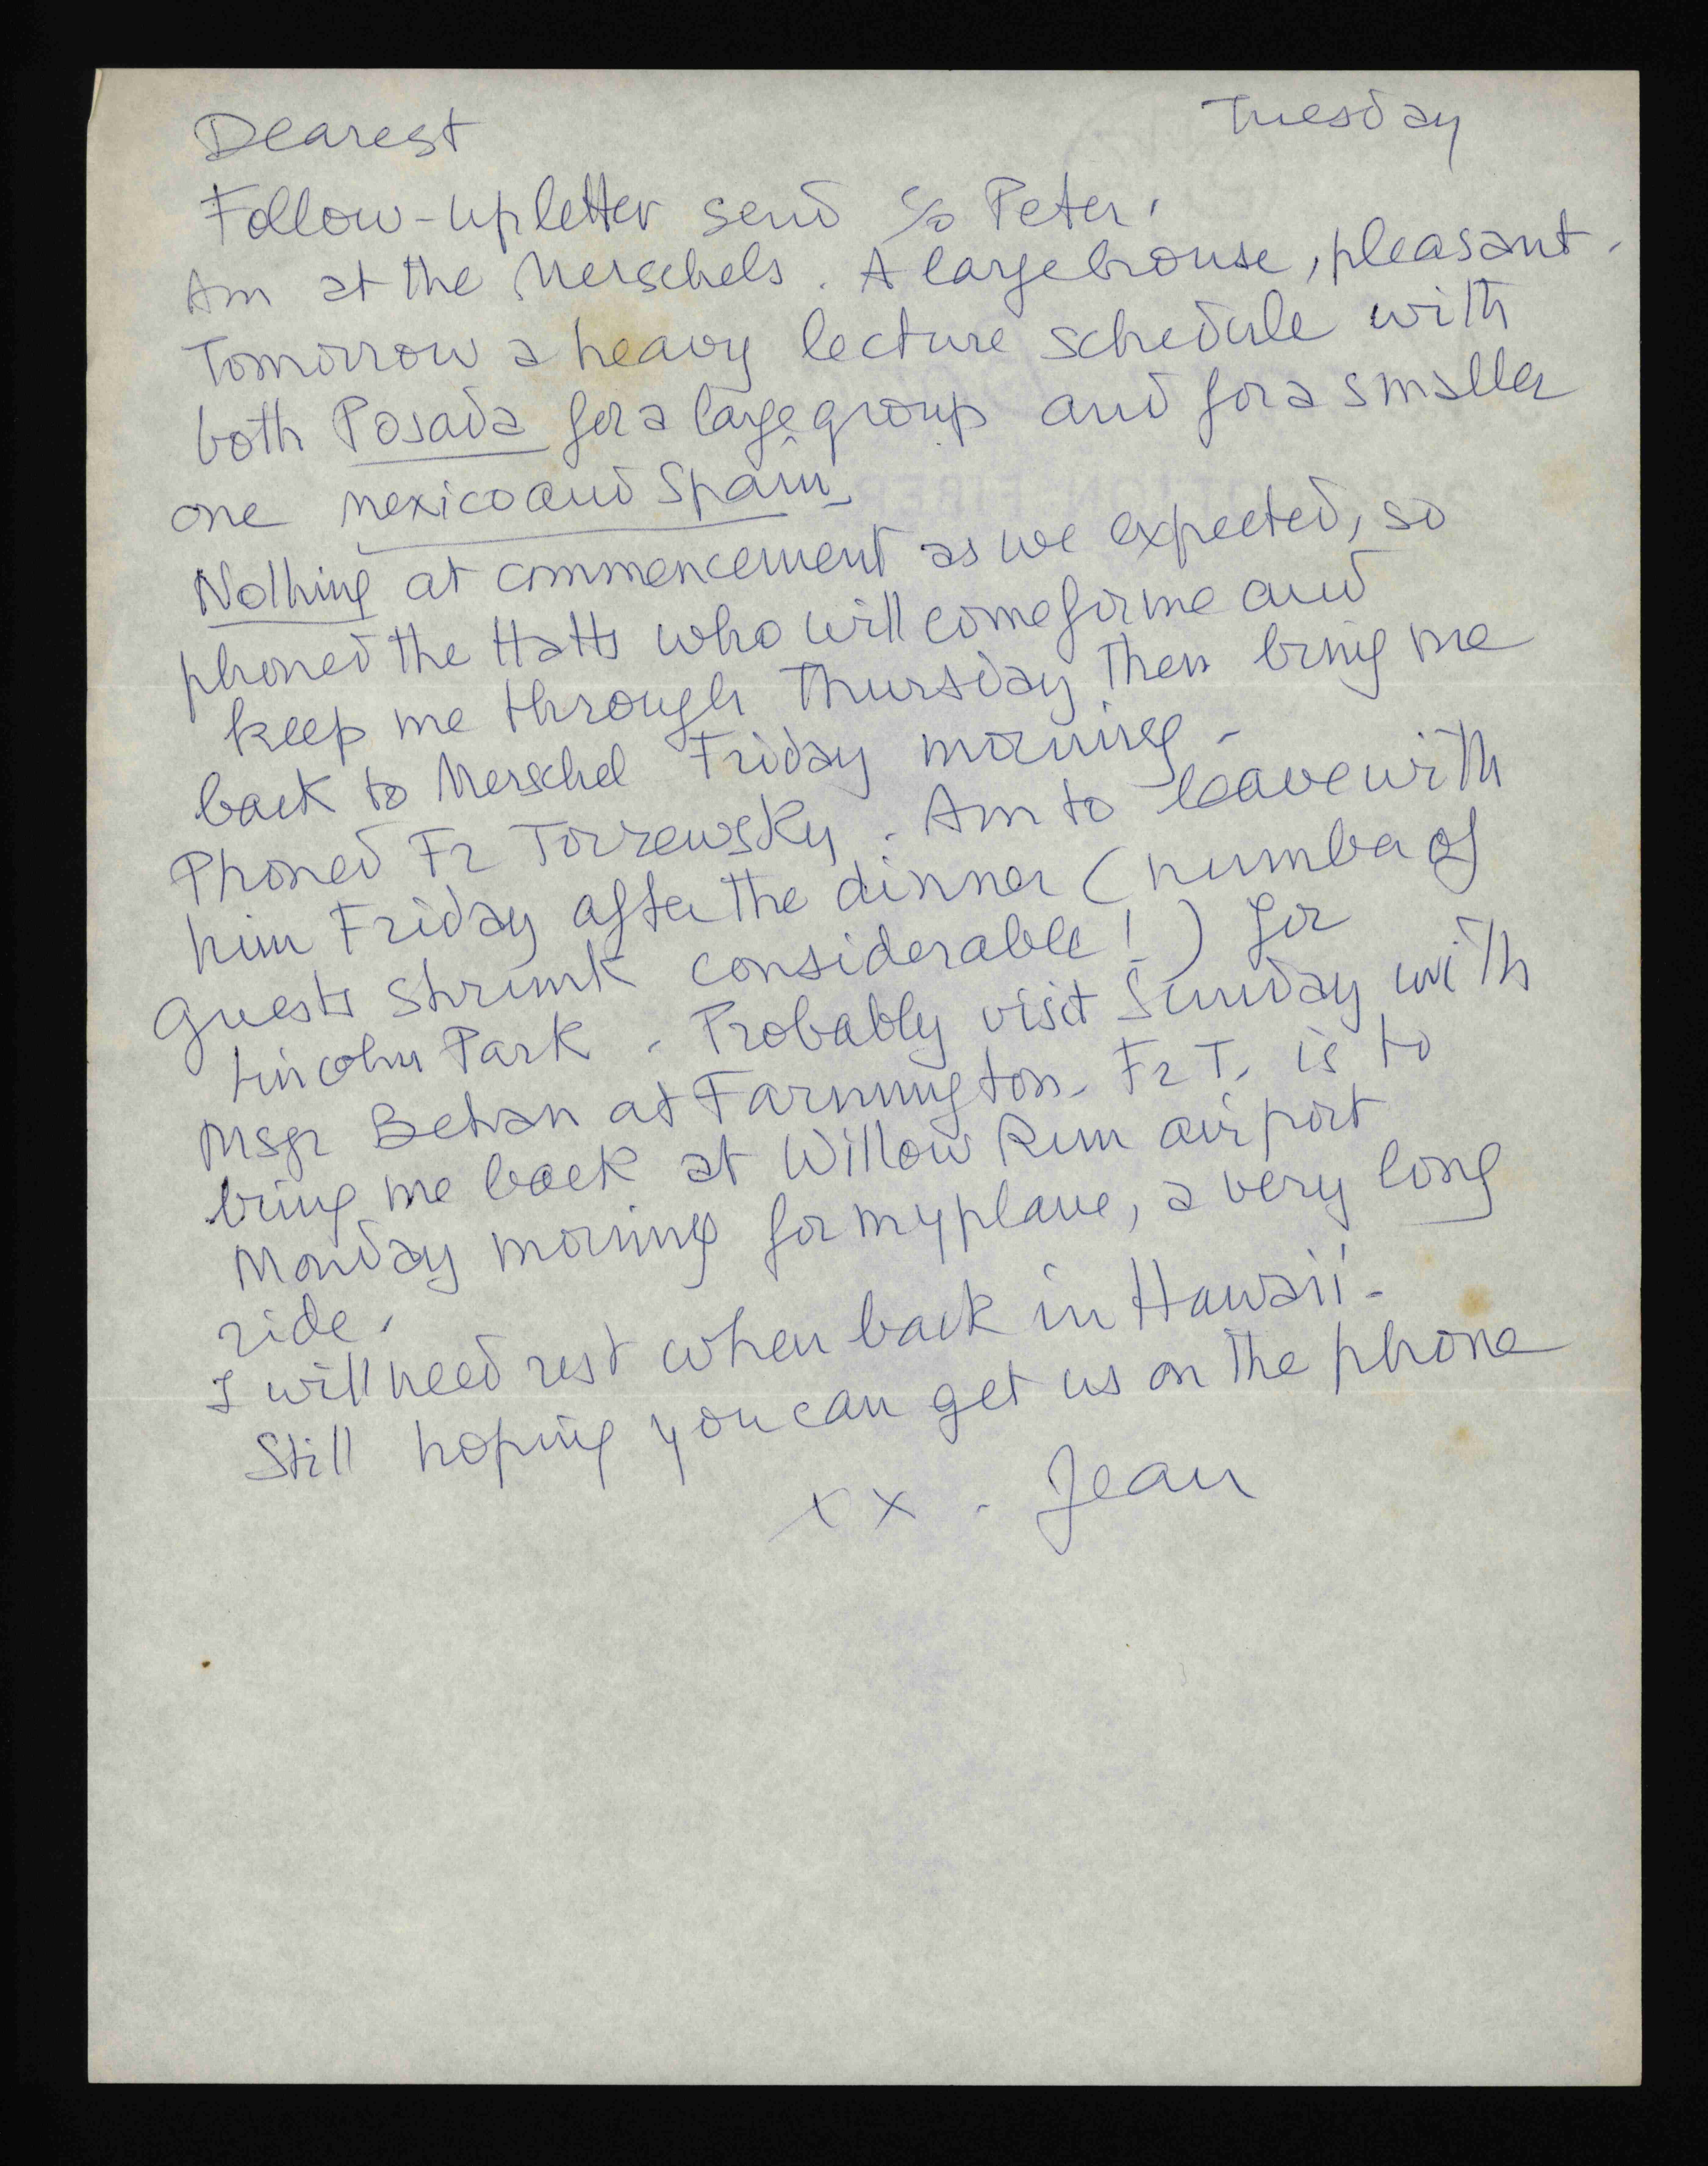 Tuesday
Dearest
Follow-up letter send c/o Peter.
Am at the Merschels. A large house, pleasant.
Tomorrow a heavy lecture schedule with
both Posada for a large group and for a smaller
one Mexico and Spain.
Nothing at commencement as we expected, so
phoned the Hatts who will come for me and
keep me through Thursday then bring me
back to Merschel Friday morning.
Phoned Fr Torzewsky. Am to leave with
him Friday after the dinner (number of
guests shrunk considerable!) for
Lincoln Park. Probably visit Sunday with
Msgr Behan at Farmington. Fr T. is to
bring me back at Willow Run airport
Monday morning for my plane, a very long
ride.
I will need rest when back in Hawaii.
Still hoping you can get us on the phone
xx. Jean